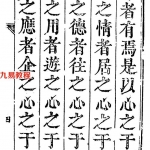 者有焉是以心之于
之情者居心之于
之德者往心之于
之用者遊心之于
之應者企心之于
九易教程
四